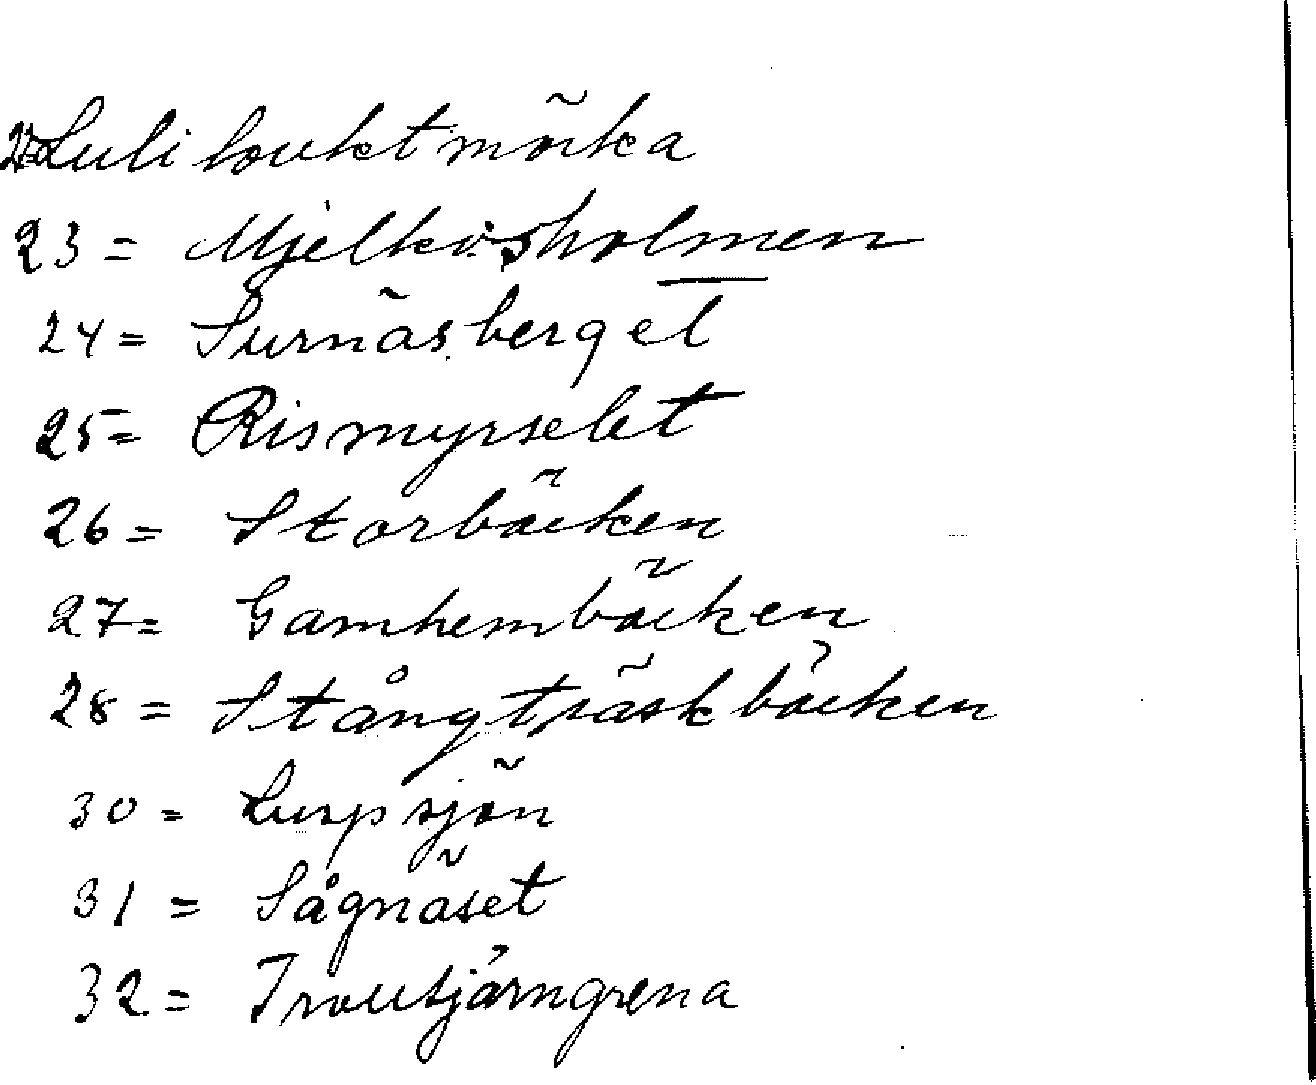 Luli mörka
23 = Mjelkåsholmen
24 = Surnäsberget
25 = Rismyrselet
26 = Storbäcken
27 = Gamhembäcken
28 = Stångträskbäcken
30 = Lurpsjön
31 = Sågnäset
32 =